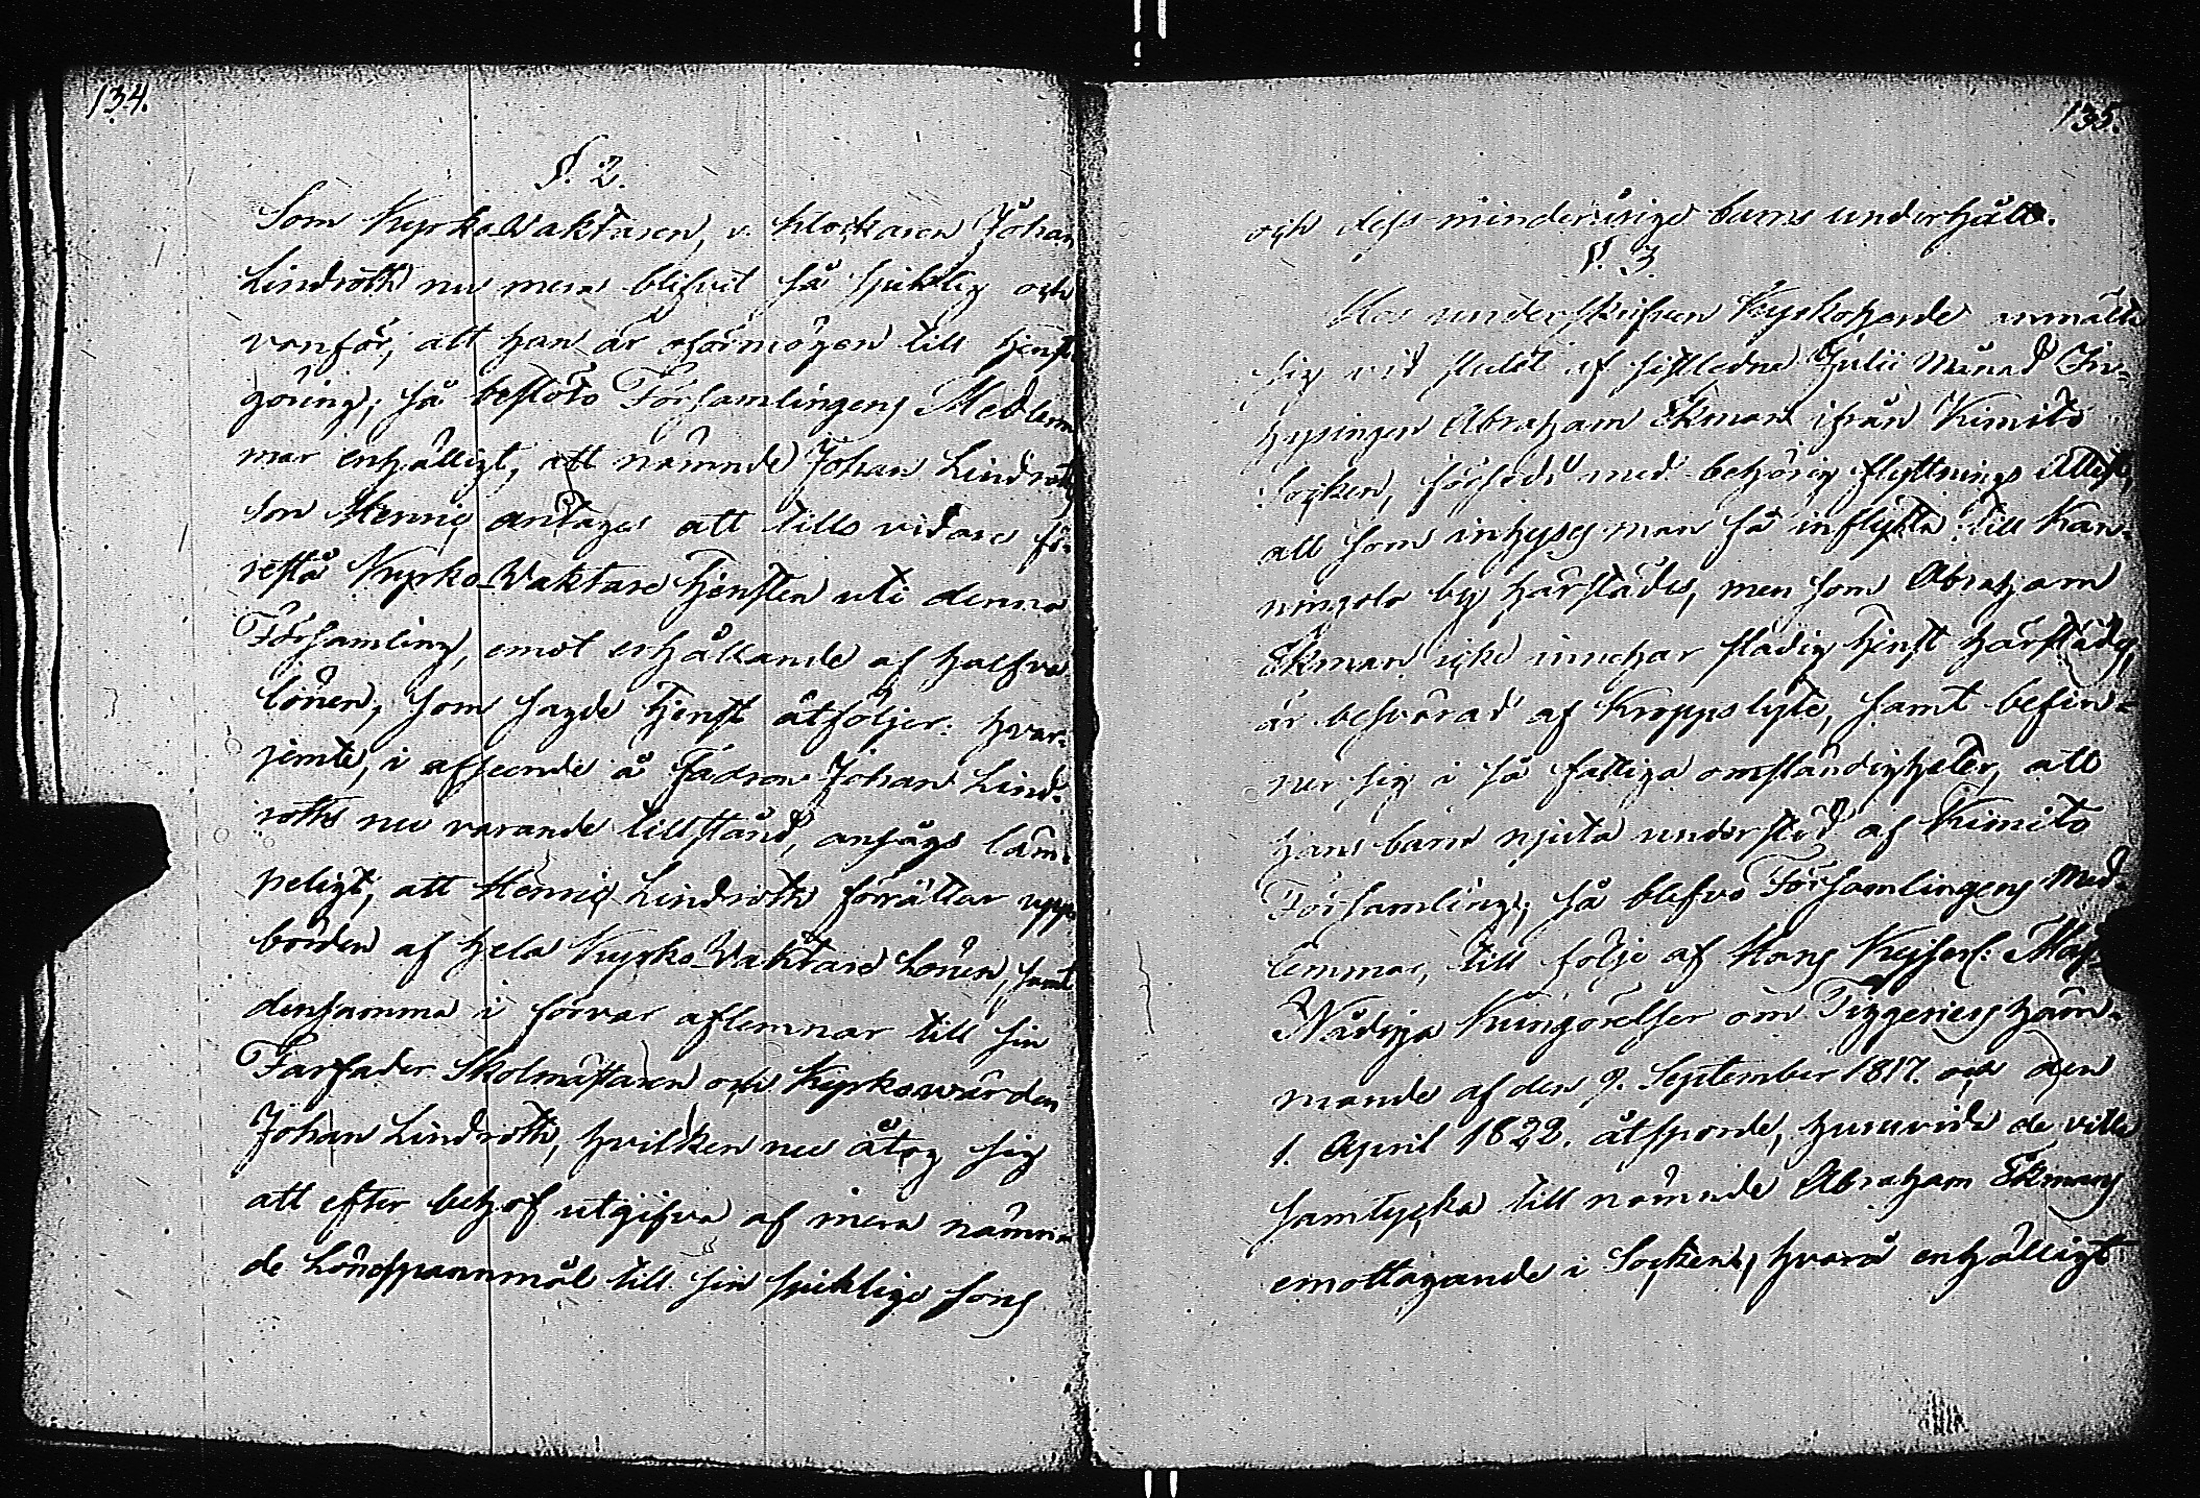 134.
§. 2.
Som Kyrko-Vaktaren, v. klockaren Johan
Lindroth nu mera blifvit så sjuklig och
vanför, att han är oförmögen till tjenst-
göring; så beslöto Församlingens Medlem
mar enhälligt, att nämnde Johan Lindroths
son Henric antages att tills vidare fö-
restå Kyrko-Vaktare tjensten uti denna
Församling, emot erhållande af halfva
lönen, som sagde tjenst åtföljer: hvar-
jemte, i afseende å Fadren Johan Lind-
roths nu varande tillstånd, ansågs läm-
peligt, att Henric Lindroth förrättar upp-
börden af hela Kyrko-Vaktare Lönen, samt
densamma i förvar aflemnar till sin
Farfader Skolmästaren och Kyrkowärden
Johan Lindroth, hvilken nu åtog sig
att efter behof utgifva af mera nämn-
de Lönespannmål till sin sjuklige sons
135.
och dess minderårige barns underhåll.
§. 3
Hos underskrifven Kyrkoherde anmälte
sig vid slutet af sistledne Julii Månad In-
hysingen Abraham Ekman ifrån Kimito
Socken, försedd med behörig flyttnings Attest,
att som inhyses man få inflytta till Kan-
ningola by härstädes, men som Abraham
Ekman icke innehar stadig tjenst härstädes,
är besvärad af Kroppslyte, samt befin-
ner sig i så fattiga omständigheter, att
hans barn njuta understöd af Kimito
Församling; så blefvo Församlingens Med-
lemmar, till följe af Hans Kejserl: Maj:
Nådiga Kungörelser om Tiggeriers häm-
mande af den 9. September 1817. och den
1. April 1822. åtsporde, huruvida de ville
samtycka till nämnde Abraham Ekmans
emottagande i Socknen, hvarå enhälligt